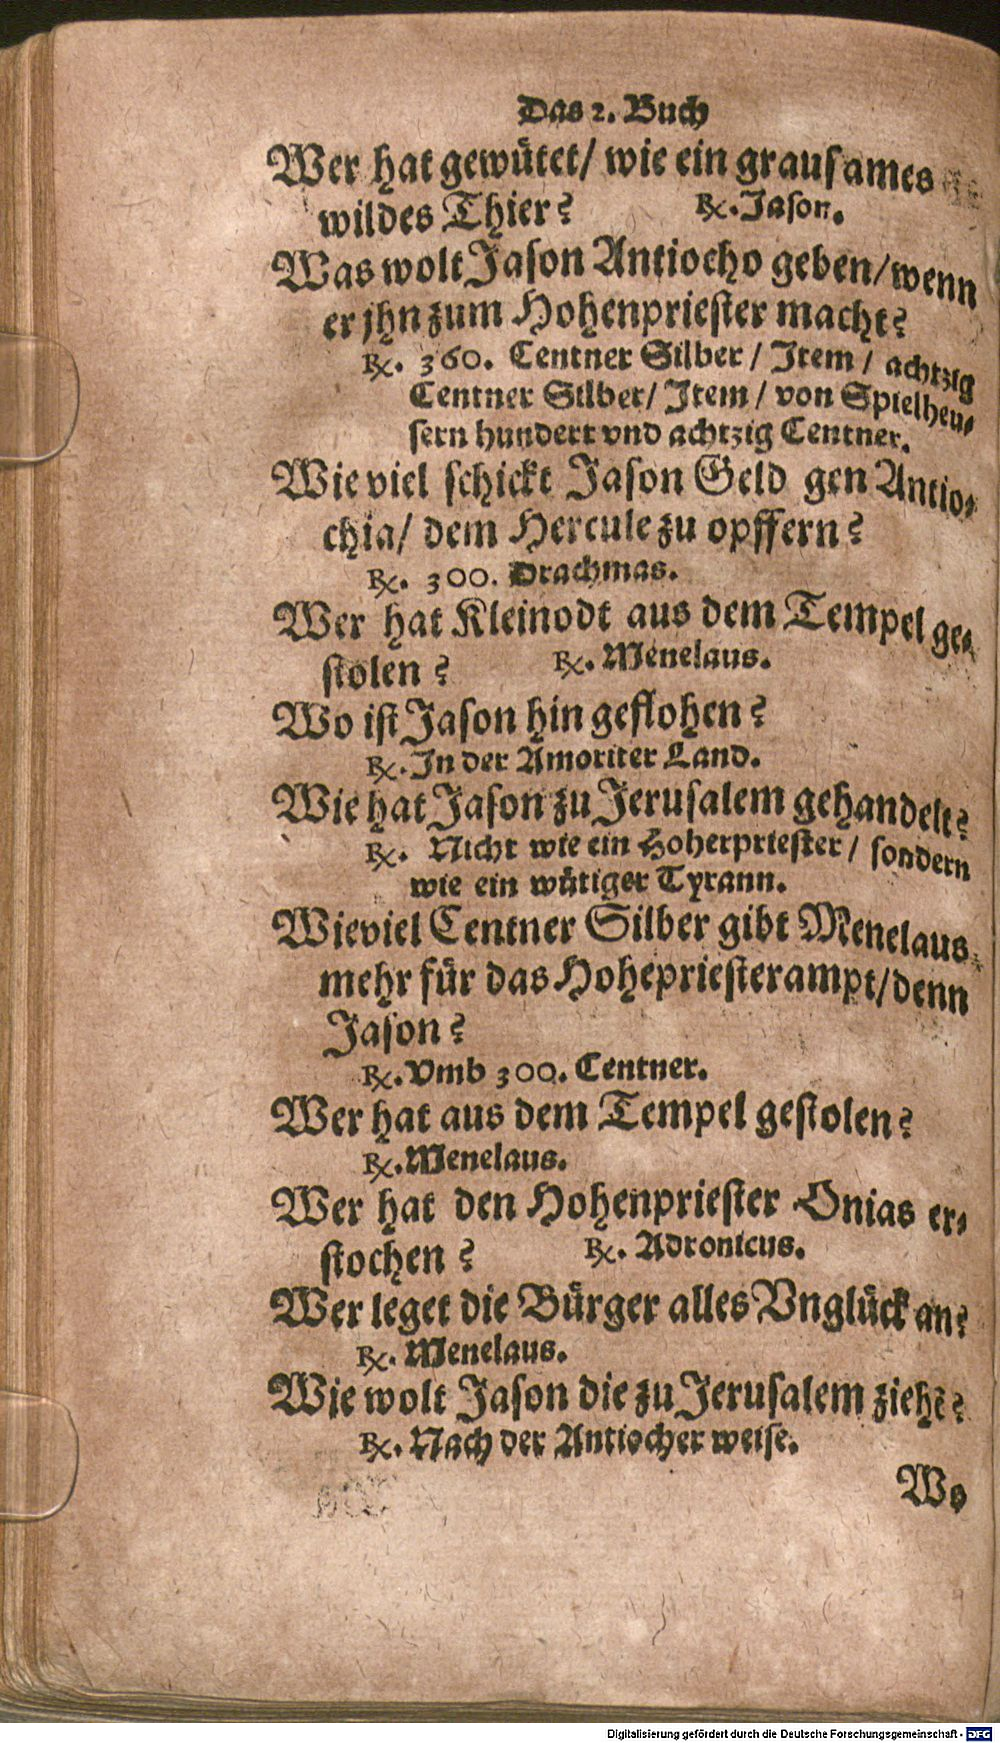 Das 2. Buch
Wer hat gewütet/ wie ein grausames
wildes Thier? ℞. Jason.
Was wolt Jason Antiocho geben/ wenn
er jhn zum Hohenpriester macht?
℞. 360. Centner Silber / Item / achtzig
Centner Silber/ Item / von Spielheu⸗
sern hundert vnd achtzig Centner.
Wie viel schickt Jason Geld gen Antio⸗
chia/ dem Hercule zu opffern?
℞. 300. Drachmas.
Wer hat Kleinodt aus dem Tempel ge⸗
stolen? ℞. Menelaus.
Wo ist Jason hin geflohen?
℞. In der Amoriter Land.
Wie hat Jason zu Jerusalem gehandelt?
℞. Nicht wie ein Hoherpriester / sondern
wie ein wütiger Tyrann.
Wieviel Centner Silber gibt Menelaus
mehr für das Hohepriesterampt/ denn
Jason?
℞. Vmb 300. Centner.
Wer hat aus dem Tempel gestolen?
℞. Menelaus.
Wer hat den Hohenpriester Onias er⸗
stochen? ℞. Adronicus.
Wer leget die Bürger alles Vnglück an?
℞. Menelaus.
Wie wolt Jason die zu Jerusalem ziehē?
℞. Nach der Antiocher weise.
Wo
Digitalisierung gefördert durch die Deutsche Forschungsgemeinschaft - DFG